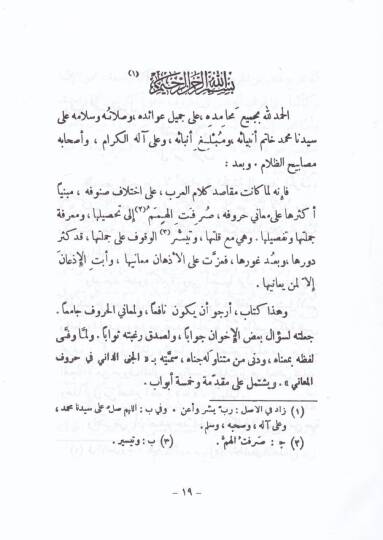 بسم الله الرحمن الرحيم (١)
الحمد لله بجميع محامِدِه ، على جميل عوائده ، وصلاتُه وسلامه على
سيدنا محمد خاتم أنبيائه ، ومُبْلِغِ أنبائه ، وعلى آله الكرام ، وأصحابه
مصابيح الظلام . وبعد :
فإنه لما كانت مقاصد كلام العرب ، على اختلاف صنوفه ، مبنياً
أكثرها على معاني حروفه ، صُرِفَتِ الهِمَمُ (٢) إلى تحصيلها ، ومعرفة
جملتها وتفصيلها . وهي مع قلتها ، وتيسُّر (٣) الوقوف على جملتها ، قد كثر
دورها ، وبعُد غورها ، فعزّت على الأذهان معانيها ، وأبتِ الإذعانَ
إلاّ لمن يعانيها .
وهذا كتاب ، أرجو أن يكون نافعاً ، ولمعاني الحروف جامعاً .
جعلته لسؤال بعض الإخوان جواباً ، ولصدق رغبته ثواباً . ولمّا وفَى
لفظه بمعناه ، ودنى من متناوله جناه ، سمّيته بـ « الجنى الداني في حروف
المعاني » . ويشتمل على مقدمة وخمسة أبواب .
(١) زاد في الأصل : ربّ يسّر وأعن . وفي ب : اللهم صلّ على سيدنا محمد ،
وعلى آله ، وصحبه ، وسلم .
(٢) ج : صَرفتُ الهمّ . (٣) ب : وتيسير .
- ١٩ -